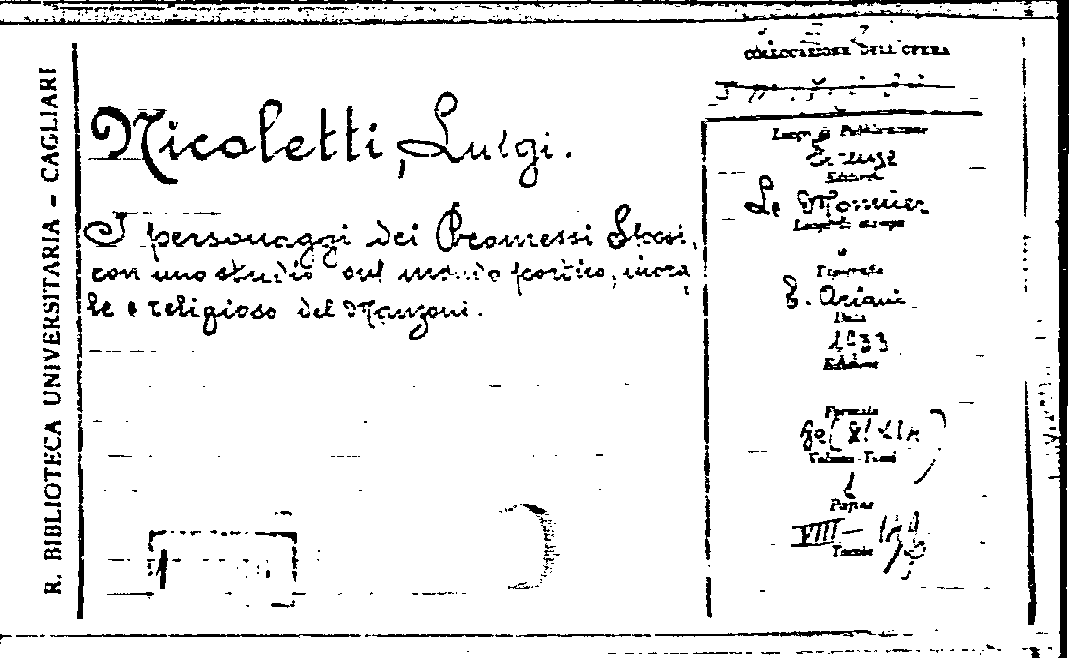 R. BIBLIOTECA UNIVERSITARIA - CAGLIARI
Nicoletti, Luigi.
I personaggi dei Promessi Sposi,
con uno studio sul mondo poetico, mora
le e religioso del Manzoni.
COLLOCAZIONE DELL'OPERA
Luogo di Pubblicazione
Firenze
Editore
Le Monnier
Luogo di stampa
Tipografia
E. Ariani
Data
1933
Edizione
Formato
Volumi - Tomi
1
Pagine
VIII -
Tavole